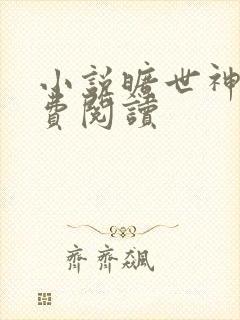 小説曠世神
費閱讀
齊齊飆